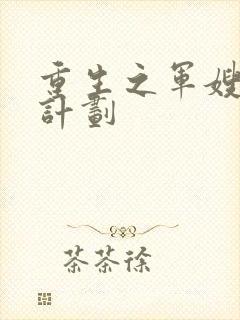 重生之军嫂
計劃
茶茶徐